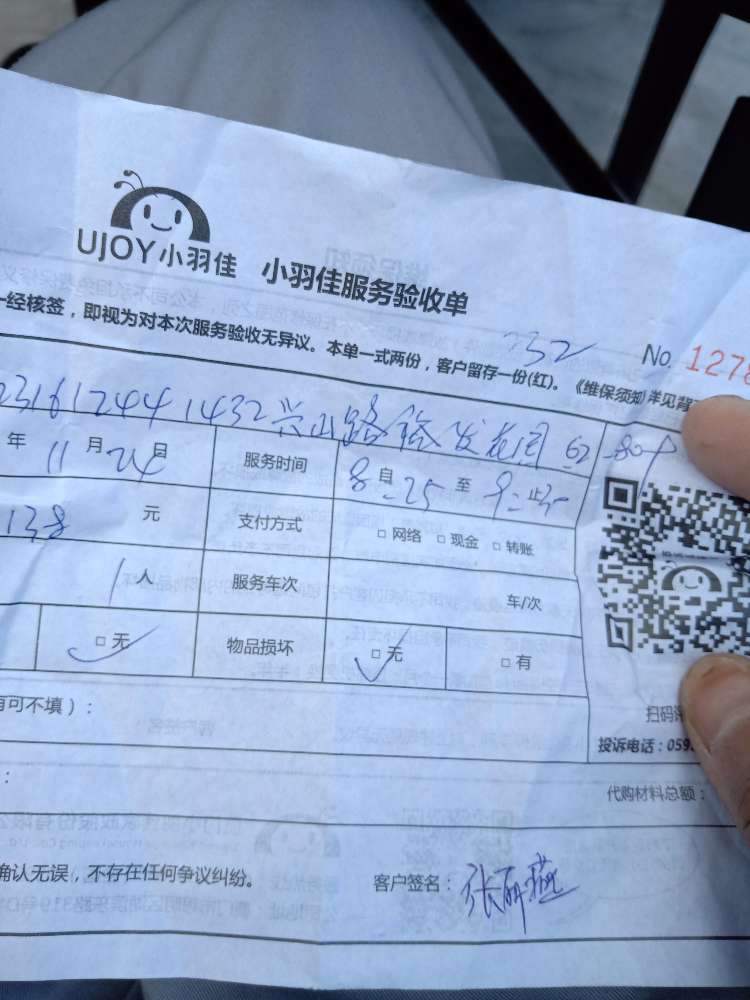 UJOY小羽佳 小羽佳服务验收单
一经核签，即视为对本次服务验收无异议。本单一式两份，客户留存一份(红)。《维保须知》详见背
No. 1278
232
23161244 1432
年 11 月 24 日 服务时间 8 自 25 至 9 止
138 元 支付方式 □ 网络 □ 现金 □ 转账
1 人 服务车次 车/次
□ 无 物品损坏 □ 无 □ 有
有可不填）：
扫码评
投诉电话：059
代购材料总额：
确认无误，不存在任何争议纠纷。 客户签名：张丽燕